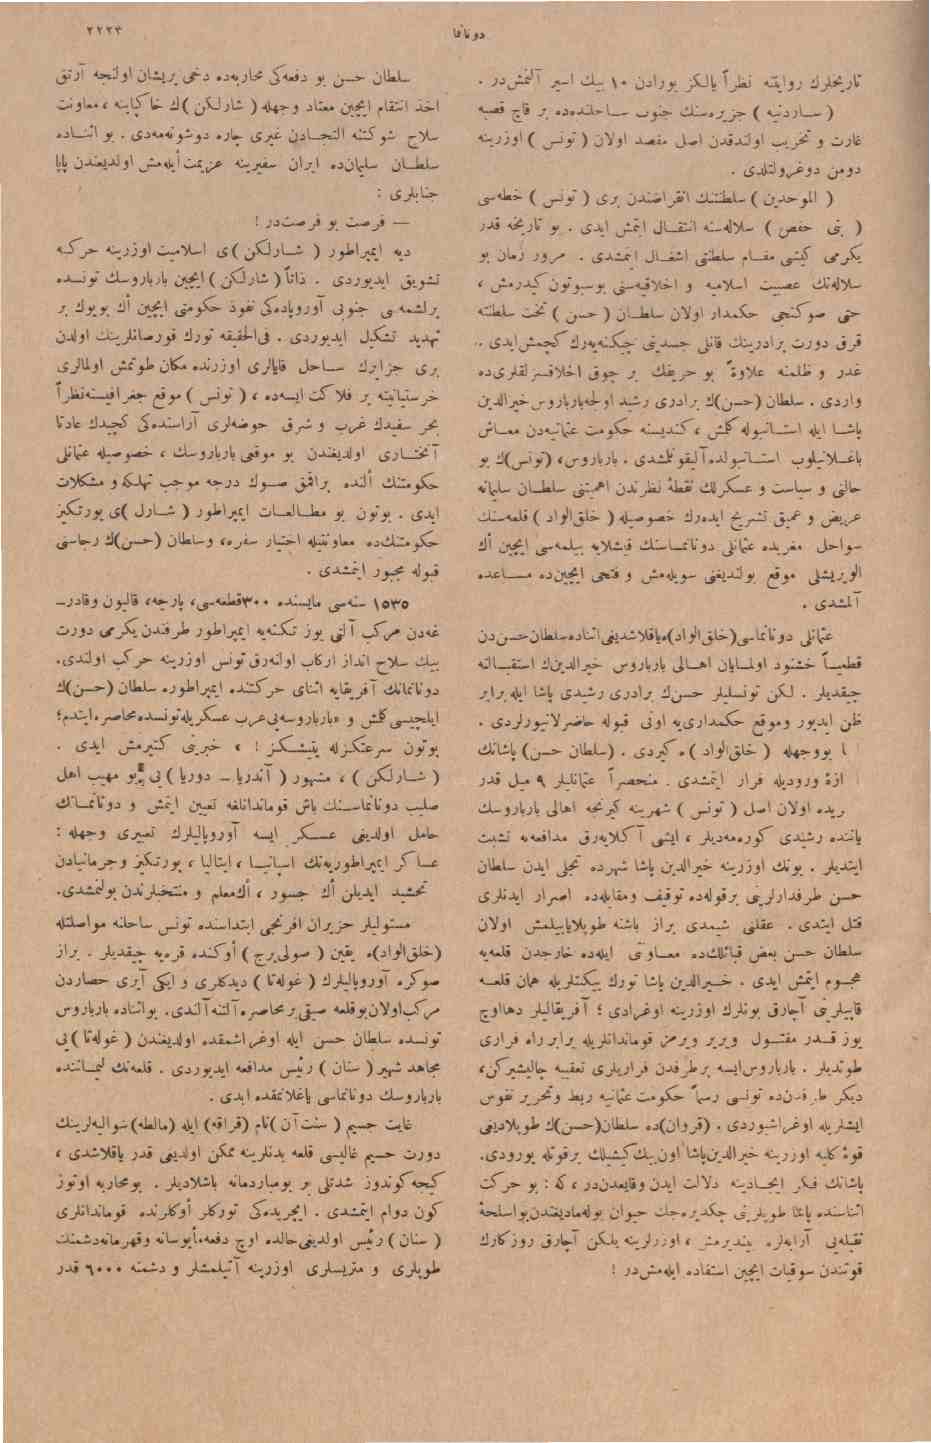 دونانما
٢٢٢٣
تاريخلرك روايتنه نظراً يالكز بورادن ١٠ بيك اسير آلنمش‌در .
( ســاردنيه ) جزيره‌سنك جنوب ســاحلنده‌ده بر قاچ قصبه
غارت و تخريب اولندقدن اصل مقصد اولان ( تونس ) اوزرينه
دومن دوغرولتلدى .
( الموحدين ) سلطنتنك انقراضندن برى ( تونس ) خطه‌سى
( بنى حفص ) سلاله‌سنه انتقــال ايتمش ايدى . بو تاريخه قدر
يكرمى كيشى مقــام سلطنتى اشغــال ايتمشدى . مرور زمان بو
سلاله‌نك عصبيت اسلاميه و اخلاقيه‌سنى بوسبوتون كيدرمش ،
حتى صوكنجى حكمدار اولان سلطــان ( حسن ) تخت سلطنته
قرق دورت برادرينك قانلى جسدينى چيكنه‌يه‌رك كچمش‌ايدى .
غدر و ظلمنه علاوةً بو حريفك بر چوق اخلاقسزلقلرى‌ده
واردى . سلطان (حسن)ك برادرى رشيد اولجه‌بارباروس خيرالدين
پاشــا ايله استــانبوله كلمش ، كنديسنه حكومت عثمانيه‌دن معــاش
باغــلانيلوب استــانبولده آليقونلمشدى . بارباروس، (تونس)ك بو
حالنى و سياست و عسكرلك نقطۀ نظرندن اهميتنى سلطــان سليمانه
عريض و عميق تشريح ايده‌رك خصوصيله ( خلق‌الواد ) قلعه‌سنك
سواحل مغربده عثمانلى دونانمــاسنك قيشلايه بيلمه‌سى ايچين اك
الويريشلى موقع بولنديغنى سويله‌مش و فتحى ايچين‌ده مســاعده
آلمشدى .
عثمانلى دونانماسى(خلق‌الواد)ه‌ياقلاشديغى‌اثناده‌سلطان‌حسن‌دن
قطعيــاً خشنود اولمــايان اهــالى بارباروس خيرالدين‌ك استقبــالنه
چيقديلر . لكن تونسليلر حسن‌ك برادرى رشيدى پاشا ايله‌برابر
ظن ايديور وموقع حكمدارى‌يه اونى قبوله حاضرلانيورلردى .
بووجهله ( خلق‌الواد )ه كيردى . (سلطان حسن) پاشانك
ازۀ وروديله فرار ايتمشدى . منحصراً عثمانليلر ٩ ميل قدر
ريده اولان اصل ( تونس ) شهرينه كيرنجه اهالى بارباروسك
ياننده رشيدى كوره‌مه‌ديلر ، ايشى آكلايه‌رق مدافعه‌يه تشبث
ايتديلر . بونك اوزرينه خيرالدين پاشا شهرده تجلى ايدن سلطان
حسن طرفدارلرينى برقوله‌ده توقيف ومقابله‌ده اصرار ايدنلرى
قتل ايتدى . عقلنى شيمدى براز باشنه طوپلايابيلمش اولان
سلطان حسن بعض قبائلك‌ده معــاونتى ايله‌ده خارجدن قلعه‌يه
هجــوم ايتمش ايدى . خــيرالدين پاشا تورك بيكتلريله همان قلعــه
قاپيلرينى آچارق بونلرك اوزرينه اوغرادى ؛ آفريقاليلر دهااوچ
يوز قــدر مقتــول ويرير ويرمز قوماندانلريله برابر راه فرارى
طوتديلر . بارباروس‌ايسه برطرفدن فراريلرى تعقيبه چاليشيركن،
ديكر طرفدن‌ده تونسى رسماً حكومت عثمانيه ربط وتحرير نفوس
ايشلريله اوغراشيوردى . (قروان)ده سلطان(حسن)ك طوپلاديغى
قوۀ كليه اوزرينه خيرالدين‌پاشا اون‌بيك‌كيشيلك برقوتله يورودى.
پاشانك فكر ايجــادينه دلالت ايدن وقايعدن‌در ، كه : بو حركت
اثناسنده پاشا طوپلرينى چكديره‌جك حيوان بوله‌ماديغندن‌بواسلحۀ
ثقيله‌يى آرابه‌لره بينديرمش ، اوزرلرينه يلكن آچارق روزكارك
قوتندن سوقيات ايچين استفاده ايله‌مش‌در !
سلطان حسن بو دفعه‌كى محاربه‌ده دخى پريشان اولنجه آرتق
اخذ انتقام ايچين معتاد وجهله ( شارلكن )ك خاكپاينه ، معاونت
سلاح شوكتنه التجــادن غيرى چاره دوشونه‌مه‌دى . بو اثنــاده
سلطــان سليمان‌ده ايران سفيرينه عزيمت‌ايله‌مش اولديغندن پاپا
جنابلرى :
— فرصت بو فرصت‌در !
ديه ايمپراطور ( شــارلكن )ى اسلاميت اوزرينه حركــه
تشويق ايديوردى . ذاتاً ( شارلكن ) ايچين بارباروسك تونســده
يرلشمه‌سى جنوبى آوروپاده‌كى نفوذ حكومتى ايچين اك بويوك بر
تهديد تشكيل ايديوردى . فى‌الحقيقه تورك قورصانلرينك اولدن
برى جزايرك ســاحل قايالرى اوزرنده مكان طوتمش اولمالرى
خرستيانيته بر فلاكت ايسه‌ده ، ( تونس ) موقع جغرافيسنه‌نظراً
بحر سفيدك غرب و شرق حوضه‌لرى آراسنده‌كى كچيدك عادتا
آنختــارى اولديغندن بو موقعى بارباروسك ، خصوصيله عثمانلى
حكومتنك ألنده براقمق صــوك درجه موجب تهلكه و مشكلات
ايدى . بوتون بو مطــالعــات ايمپراطور ( شــارل )ى پورتكيز
حكومتنك‌ده معاونتيله اختيار سفره، وسلطان (حسن)ك رجاسنى
قبوله مجبور ايتمشدى .
١٥٣٥ سنه‌سى مايسنده ٣٠٠قطعه‌سى، پارچه، قاليون وقادرــ
غه‌دن مركب آلتى يوز تكنه‌يه ايمپراطور طرفندن يكرمى دورت
بيك سلاح انداز اركاب اولنه‌رق تونس اوزرينه حركت اولندى.
دونانمانك آفريقايه اثناى حركتنده ايمپراطوره سلطان (حسن)ك
ايلچيسى كلمش و «بارباروسه‌نى‌عرب عسكريله‌تونسده‌محاصره‌ايتدم؛
بوتون سرعتكزله يتيشــكز ! » خبرينى كتيرمش ايدى .
( شــارلكن ) ، مشهور ( آندريا ــ دوريا ) يى بو مهيب اهل
صليب دونانماســنك باش قوماندانلغه تعيين ايتمش و دونانمــانك
حامل اولديغى عســكر ايسه آوروپاليلرك تعبيرى وجهله :
عســاكر ايمپراطوريه‌نك اسپانيــا ، ايتاليا ، پورتكيز وجرمانيادن
تحشيد ايديلن اك جسور ، اك‌معلم و منتخبلرندن بولنمشدى.
مستوليلر حزيران افرنجى ابتداسنده تونس ساحلنه مواصلتله
(خلق‌الواد)ه يقين ( صولى‌برج ) أوكنده قره‌يه چيقديلر . براز
صوكره آوروپاليلرك ( غوله‌تا ) ديدكلرى و ايكى آيرى حصاردن
مركب‌اولان‌بوقلعه صيقى‌برمحاصره آلتنه‌آلندى. بواثناده بارباروس
تونسده سلطان حسن ايله اوغراشمقده اولديغندن ( غوله‌تا ) يى
مجاهد شهير ( سنان ) رئيس مدافعه ايديوردى . قلعه‌نك ليمــاننده
بارباروسك دونانماسى باغلانمقده ايدى .
غايت جسيم ( سنت‌آن )نام (قراقه) ايله (مالطه)شواليه‌لرينك
دورت جسيم غاليسى قلعه بدنلرينه ممكن اولديغى قدر ياقلاشدى ،
كيجه كوندوز شدتلى بر بومباردمانه باشلاديلر . بومحاربه اوتوز
كون دوام ايتمشدى . ايچريده‌كى توركلر أوكلرنده قوماندانلرى
( سنان ) رئيس اولديغى‌حالده اوچ دفعه‌مأيوسانه وقهرمانه‌دشمنك
طوپلرى و متريسلرى اوزرينه آتيلمشلر و دشمنه ٦٠٠٠ قدر